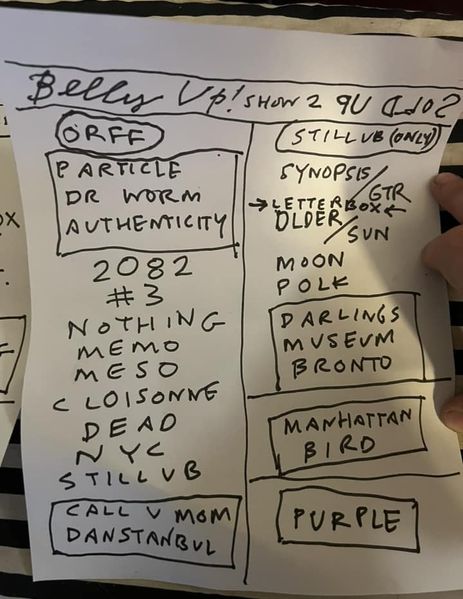 Belly Up! SHOW 2 SOLD UP
ORFF
PARTICLE
DR WORM
AUTHENTICITY
2082
#3
NOTHING
MEMO
MESO
CLOISONNE
DEAD
NYC
STILL UB
CALL U MOM
DANSTANBUL
STILL UB (ONLY)
SYNOPSIS/
GTR
→LETTERBOX←
OLDER
/SUN
MOON
POLK
DARLINGS
MUSEUM
BRONTO
MANHATTAN
BIRD
PURPLE